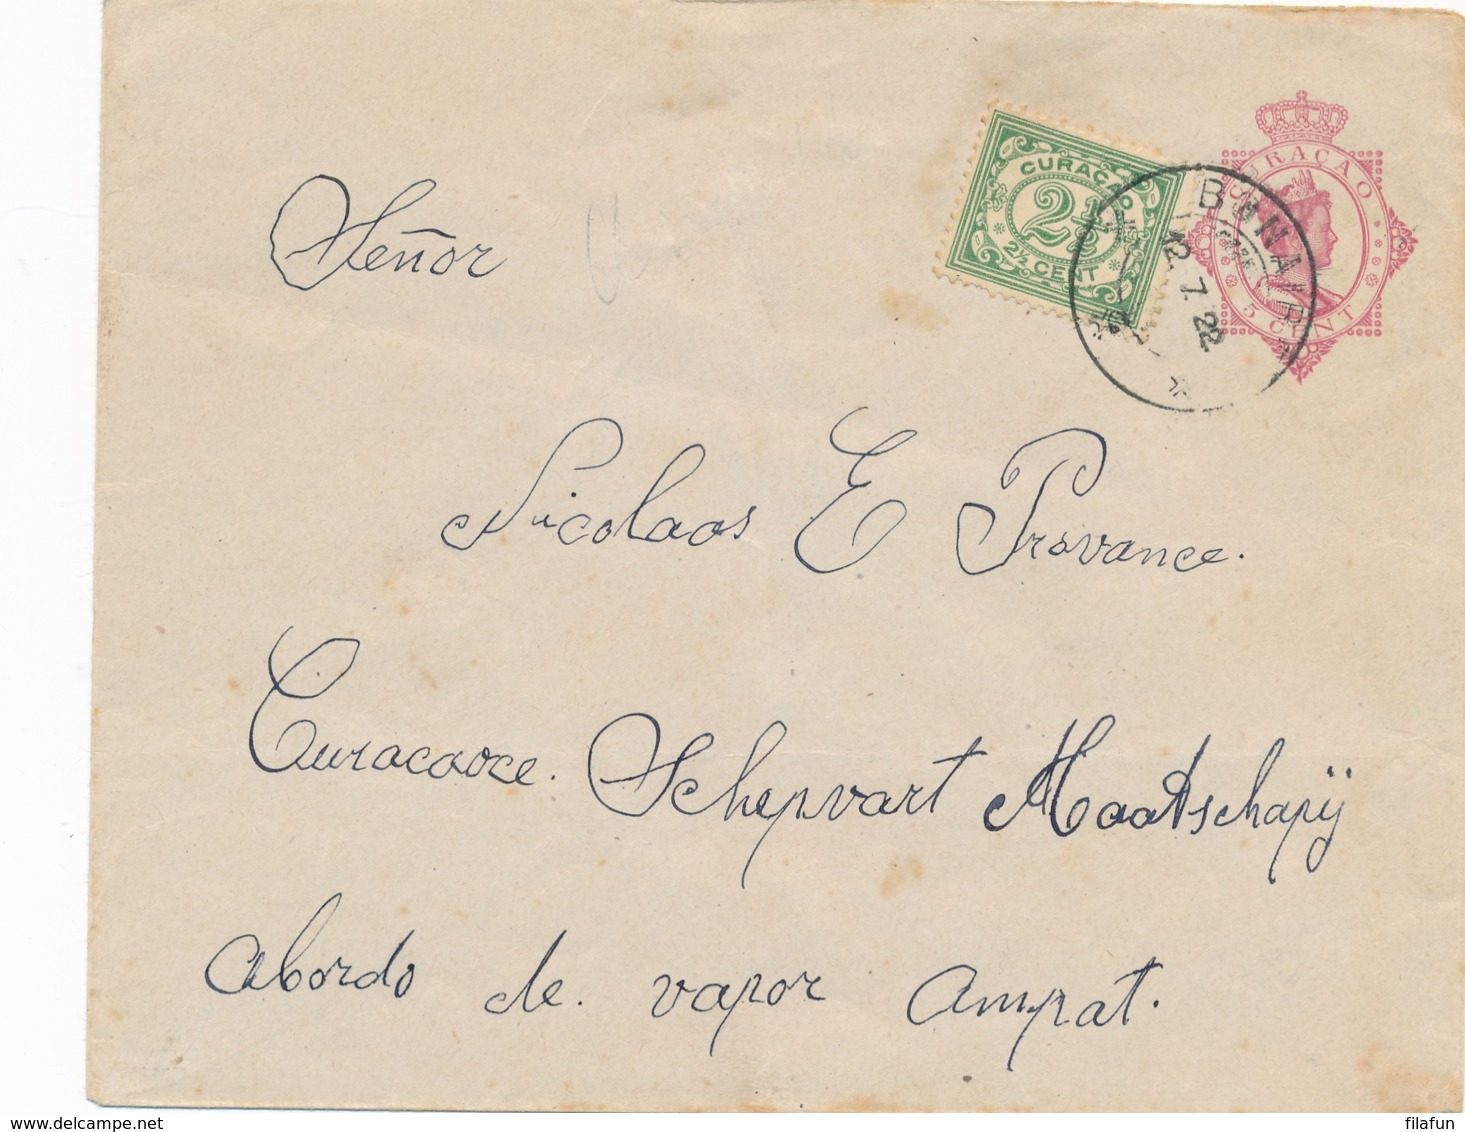 CURAÇAO
2½
2½ CENT
CURAÇAO
5 CENT
BONAIRE
12.7.22
Señor
Nicolaas E Provance.
Curacaosce. Schepvart Maatschapij
abordo de. vapor Ampat.
filafun